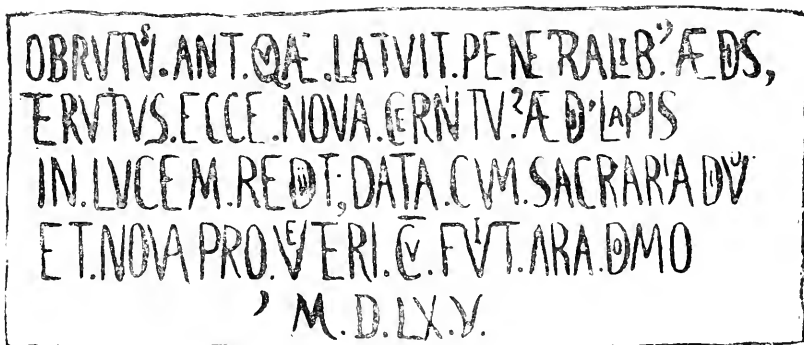 OBRVTVS.ANT.QÆ.LATVIT.PENETRALIB⁹.ÆDS,
ERVTVS.ECCE.NOVA.CERNITV².ÆD'LAPIS
IN.LVCEM.REDIT;DATA.CVM.SACRARIA DIVV
ET.NOVA PRO.VETERI.CV̄.FVIT.ARA.DOMO
’M.D.LX.V.